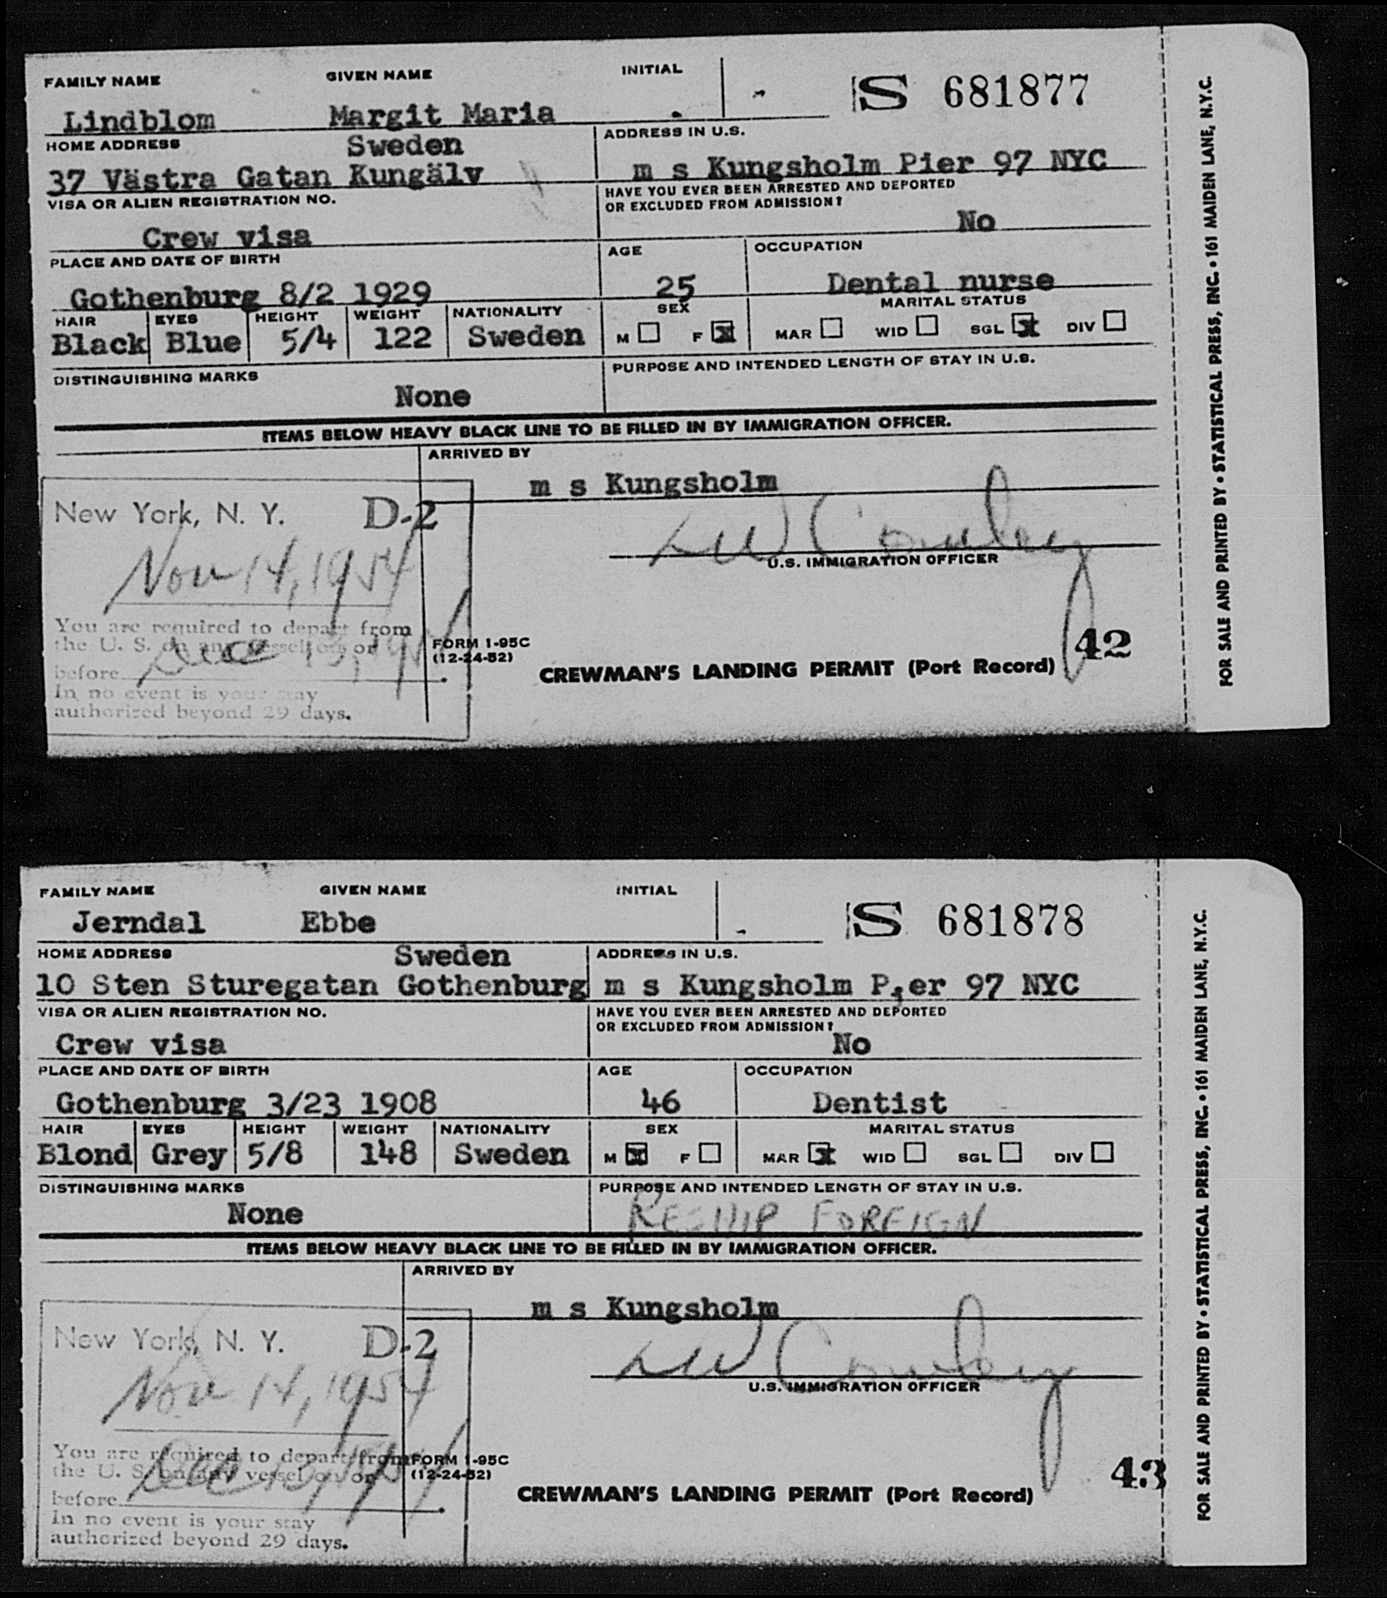 FAMILY NAME GIVEN NAME INITIAL
S 681877
Lindblom Margit Maria . -
HOME ADDRESS Sweden ADDRESS IN U.S.
37 Västra Gatan Kungälv m s Kungsholm Pier 97 NYC
VISA OR ALIEN REGISTRATION NO. HAVE YOU EVER BEEN ARRESTED AND DEPORTED
OR EXCLUDED FROM ADMISSION?
Crew visa No
PLACE AND DATE OF BIRTH AGE OCCUPATION
Gothenburg 8/2 1929 25 Dental nurse
HAIR EYES HEIGHT WEIGHT NATIONALITY SEX MARITAL STATUS
Black Blue 5/4 122 Sweden M F x MAR WID SGL x DIV
DISTINGUISHING MARKS PURPOSE AND INTENDED LENGTH OF STAY IN U.S.
None
ITEMS BELOW HEAVY BLACK LINE TO BE FILLED IN BY IMMIGRATION OFFICER.
ARRIVED BY
m s Kungsholm
New York, N. Y. D-2
Nov 14, 1954
LW Cowley
U.S. IMMIGRATION OFFICER
You are required to depart from
the U. S. on any vessel on or
before Dec 13, 1954
In no event is your stay
authorized beyond 29 days.
FORM I-95C
(12-24-52)
CREWMAN'S LANDING PERMIT (Port Record)
42
FOR SALE AND PRINTED BY • STATISTICAL PRESS, INC. • 161 MAIDEN LANE, N.Y.C.
FAMILY NAME GIVEN NAME INITIAL
S 681878
Jerndal Ebbe -
HOME ADDRESS Sweden ADDRESS IN U.S.
10 Sten Sturegatan Gothenburg m s Kungsholm P,er 97 NYC
VISA OR ALIEN REGISTRATION NO. HAVE YOU EVER BEEN ARRESTED AND DEPORTED
OR EXCLUDED FROM ADMISSION?
Crew visa No
PLACE AND DATE OF BIRTH AGE OCCUPATION
Gothenburg 3/23 1908 46 Dentist
HAIR EYES HEIGHT WEIGHT NATIONALITY SEX MARITAL STATUS
Blond Grey 5/8 148 Sweden M x F MAR x WID SGL DIV
DISTINGUISHING MARKS PURPOSE AND INTENDED LENGTH OF STAY IN U.S.
None RESHIP FOREIGN
ITEMS BELOW HEAVY BLACK LINE TO BE FILLED IN BY IMMIGRATION OFFICER.
ARRIVED BY
m s Kungsholm
New York, N. Y. D-2
Nov 14, 1954
LW Cowley
U.S. IMMIGRATION OFFICER
You are required to depart from
the U. S. on any vessel on or
before Dec 13, 1954
In no event is your stay
authorized beyond 29 days.
FORM I-95C
(12-24-52)
CREWMAN'S LANDING PERMIT (Port Record)
43
FOR SALE AND PRINTED BY • STATISTICAL PRESS, INC. • 161 MAIDEN LANE, N.Y.C.